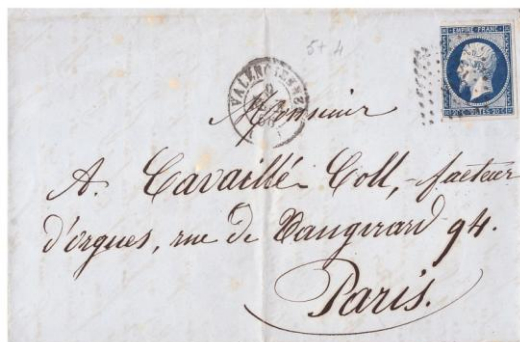 5+4
EMPIRE FRANC
20 C POSTES 20 C
VALENCIENNES
9
Monsieur
A. Cavaillé-Coll, facteur
d'orgues, rue de Vaugirard 94.
Paris.